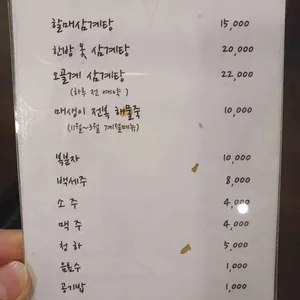 할매삼계탕 15,000
한방 옻 삼계탕 20,000
오골계 삼계탕 22,000
(하루 전 예약)
매생이 전복 해물죽 10,000
(11월~3월 계절메뉴)
복분자 10,000
백세주 8,000
소주 4,000
맥주 4,000
청하 5,000
음료수 1,000
공기밥 1,000